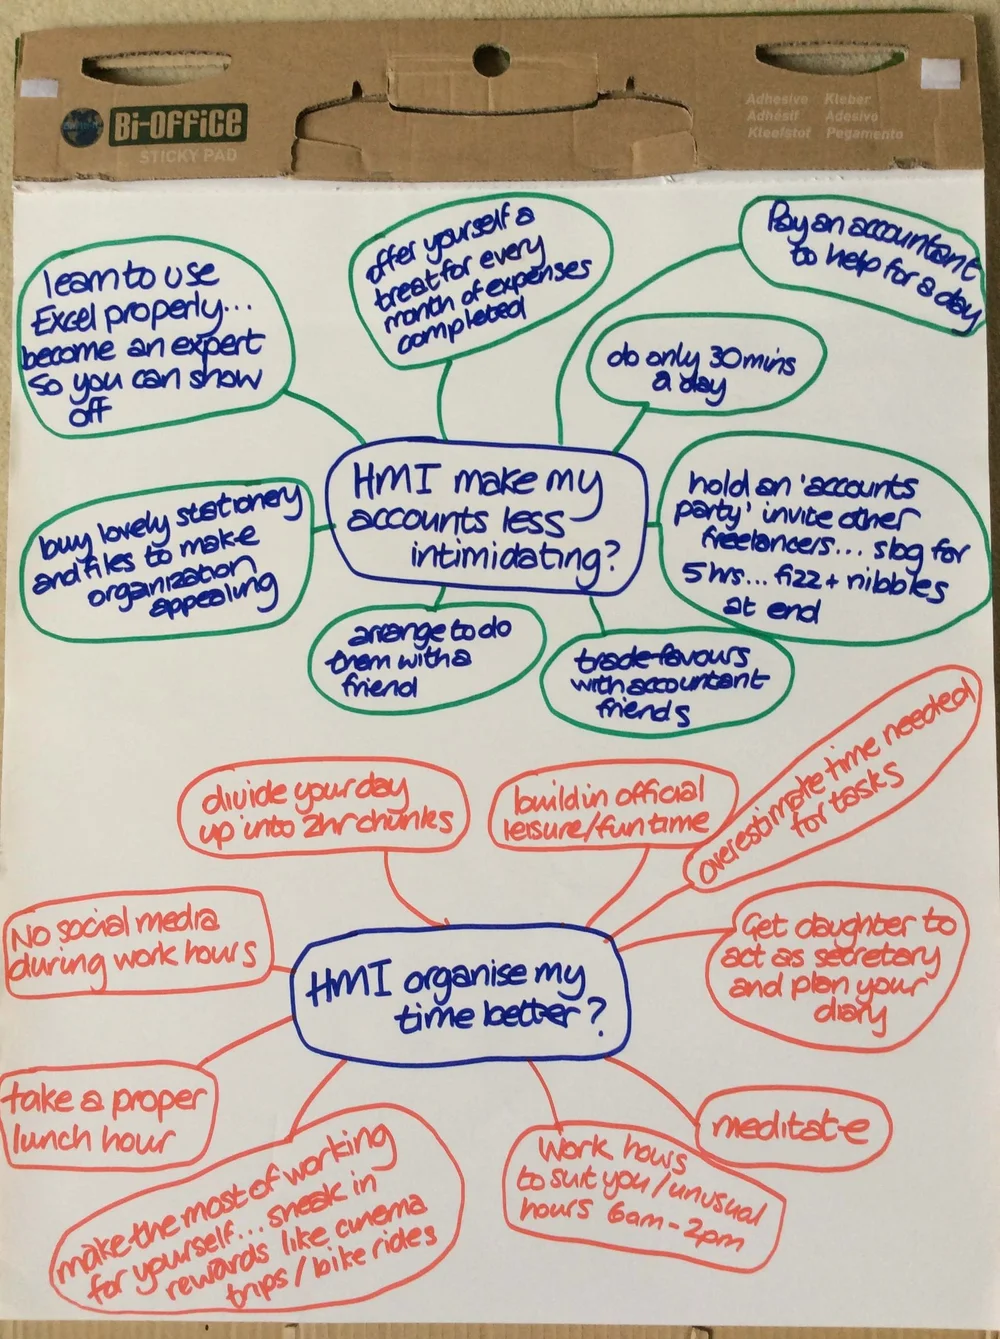 Bi-OFFiCE
STICKY PAD
Adhesive Kleber
Adhésif Adesivo
Kleefstof Pegamento
learn to use
Excel properly...
become an expert
so you can show
off
offer yourself a
treat for every
month of expenses
completed
Pay an accountant
to help for a day
do only 30mins
a day
HMI make my
accounts less
intimidating?
buy lovely stationery
and files to make
organization
appealing
hold an 'accounts
party' invite other
freelancers... slog for
5 hrs... fizz + nibbles
at end
arrange to do
them with a
friend
trade favours
with accountant
friends
divide your day
up into 2hr chunks
build in official
leisure/fun time
overestimate time needed
for tasks
No social media
during work hours
HMI organise my
time better?
Get daughter to
act as secretary
and plan your
diary
take a proper
lunch hour
make the most of working
for yourself... sneak in
rewards like cinema
trips / bike rides
Work hours
to suit you / unusual
hours 6am-2pm
meditate